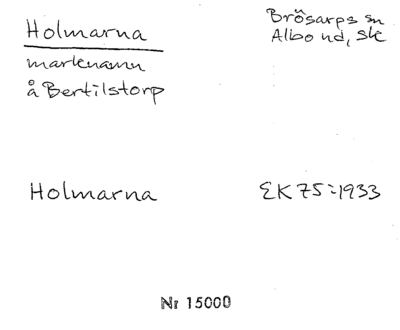 Holmarna
Brösarps sn
Albo hd, Sk
marknamn
å Bertilstorp
Holmarna
EK 75:1933
Nr 15000